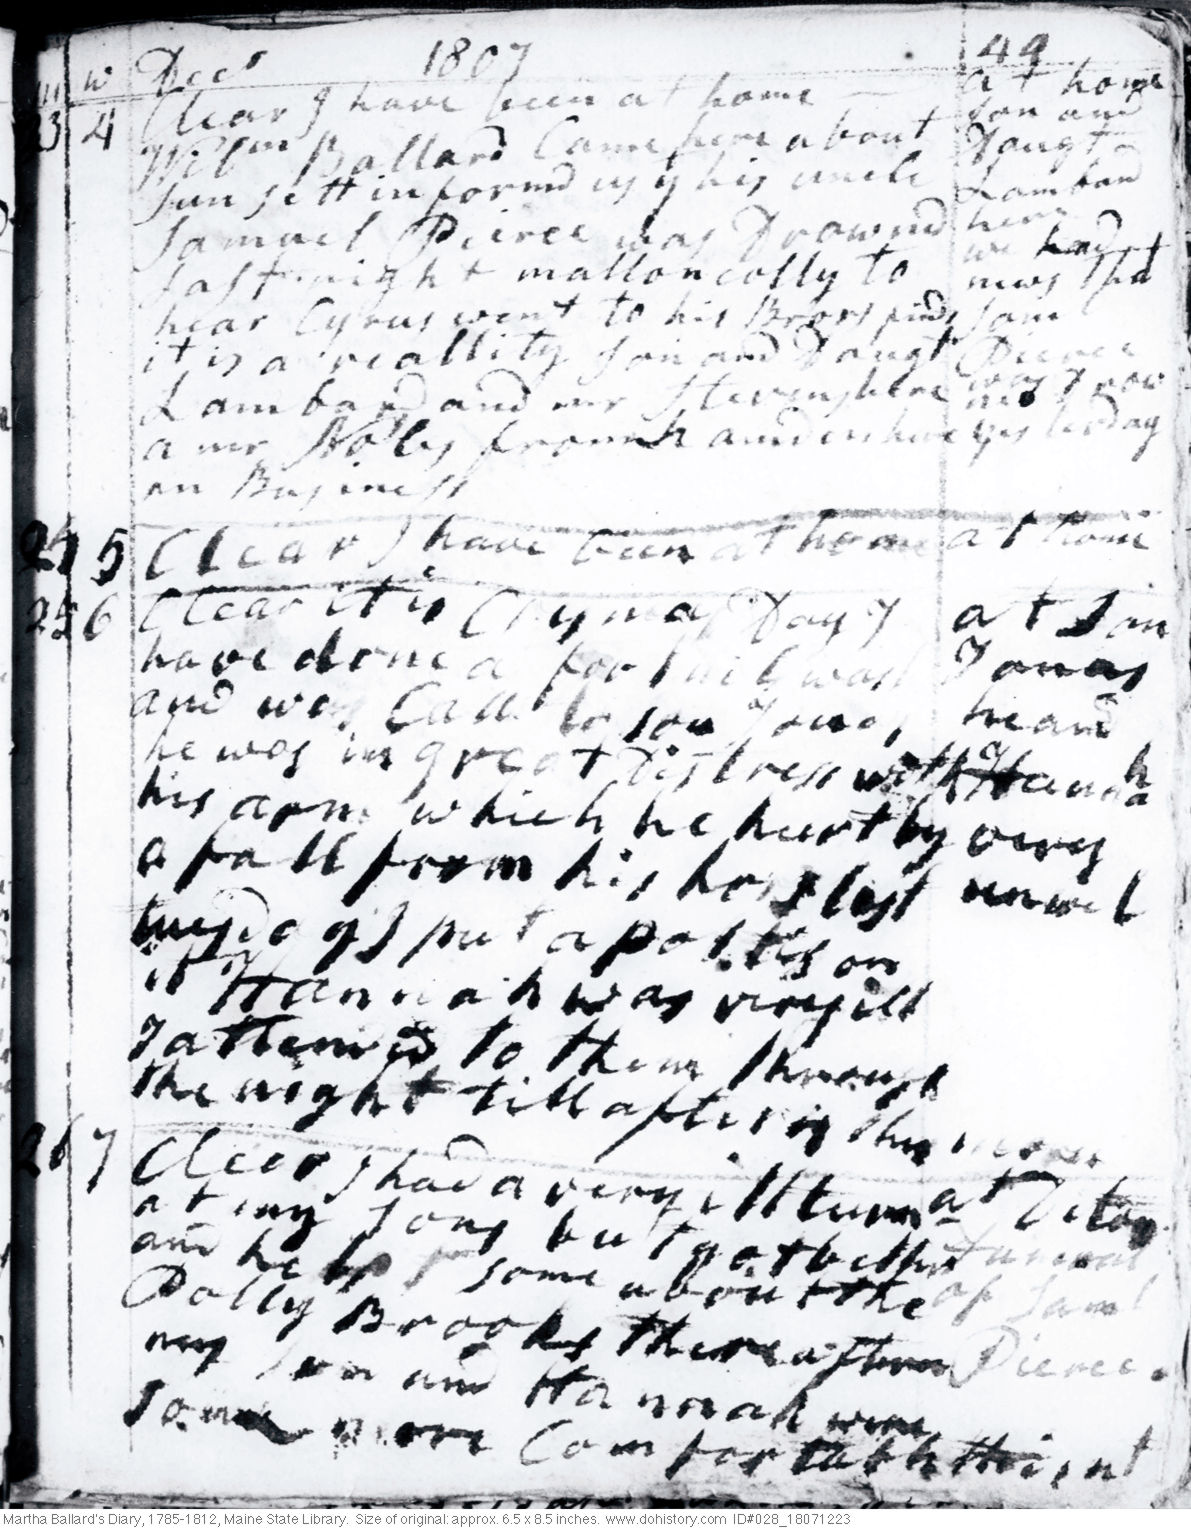 m w Decr 1807 49
23 4 Clear I have been at home
Wilm Ballard Came here about
sun sett informd us y his uncle
Samuel Pierce was Drownd
last night malloncolly to
hear Cyrus went to his Brors finds
it is a reallity Son and Daugt
Lambard and mr Stevens here
a mr Nobles from here
on Business
at home
son and
Daugt
Lambard
here
we had
news that
Sam
Pierce
was Drow
nd
yesterday
24 5 Clear I have been at home
at home
25 6 Clear it is Crysmas Day I
have done a for wash
and was Calld to son Jonas
he was in great Distress with
his arm which he hurt by
a fall from his horse last
tuesday I put a poltis on
it Hannah was very ill
I attend to them through
the night till after in the morn
at Son
Jonas
he and
Hannah
very
unwel
26 7 Clear I had a very ill turn
at my sons but got better
and helpt some about the
Polly Brooks there after
my son and Hannah were
some more Comfortable this nt
at Ditoy
Funeral
of Saml
Pierce.
Martha Ballard's Diary, 1785-1812, Maine State Library. Size of original: approx. 6.5 x 8.5 inches. www.dohistory.com ID#028_18071223